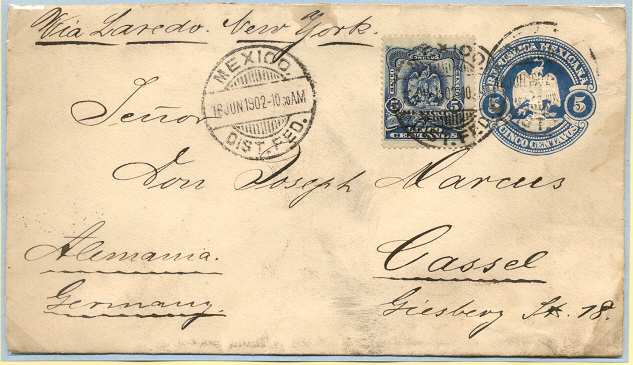 Via Laredo. New York.
MEXICO.
16 JUN 1902-10 30 AM
DIST. FED.
CORREOS
5 5
CINCO CENTAVOS
MEXICO
REPUBLICA MEXICANA
5 5
CINCO CENTAVOS
Señor
Don Joseph Marcus
Alemania.
Cassel
Germany.
Giesberg St. 18.